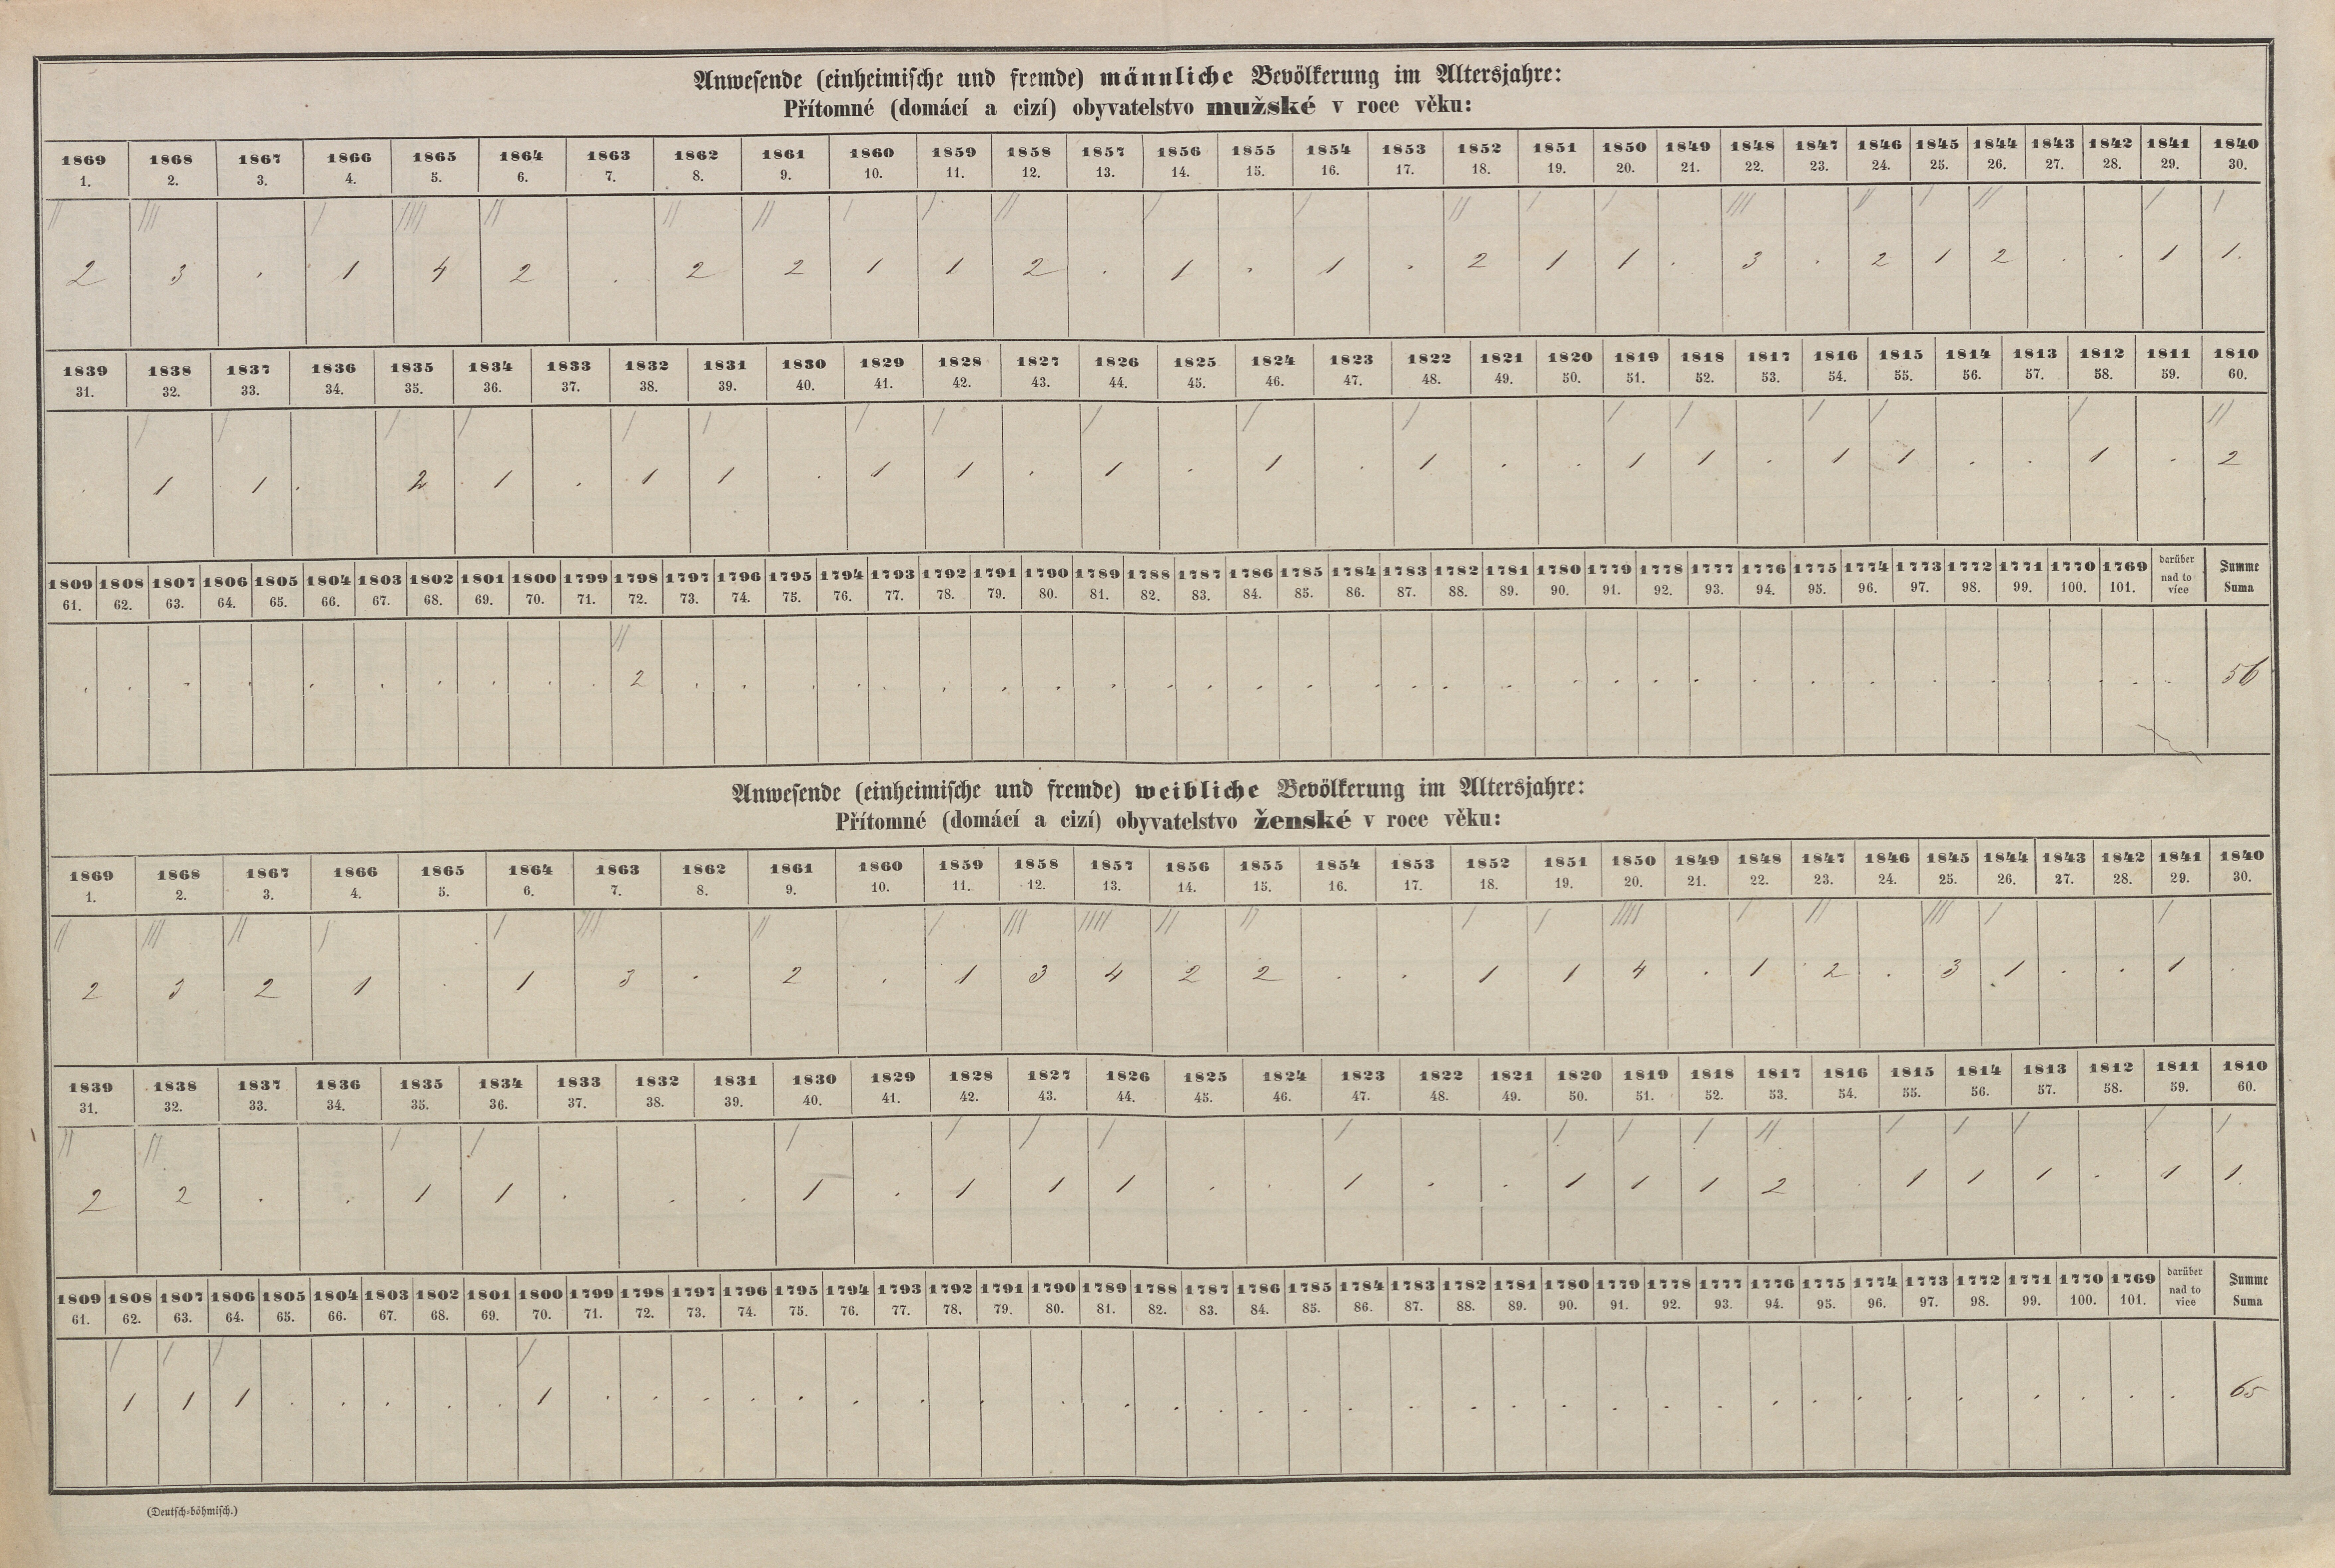 Anwesende (einheimische und fremde) männliche Bevölkerung im Altersjahre:
Přítomné (domácí a cizí) obyvatelstvo mužské v roce věku:
1869 1868 1867 1866 1865 1864 1863 1862 1861 1860 1859 1858 1857 1856 1855 1854 1853 1852 1851 1850 1849 1848 1847 1846 1845 1844 1843 1842 1841 1840
1. 2. 3. 4. 5. 6. 7. 8. 9. 10. 11. 12. 13. 14. 15. 16. 17. 18. 19. 20. 21. 22. 23. 24. 25. 26. 27. 28. 29. 30.
2 3 . 1 4 2 . 2 2 1 1 2 . 1 . 1 . 2 1 1 . 3 . 2 1 2 . . 1 1.
1839 1838 1837 1836 1835 1834 1833 1832 1831 1830 1829 1828 1827 1826 1825 1824 1823 1822 1821 1820 1819 1818 1817 1816 1815 1814 1813 1812 1811 1810
31. 32. 33. 34. 35. 36. 37. 38. 39. 40. 41. 42. 43. 44. 45. 46. 47. 48. 49. 50. 51. 52. 53. 54. 55. 56. 57. 58. 59. 60.
. 1 1 . 2 1 . 1 1 . 1 1 . 1 . 1 . 1 . . 1 1 . 1 1 . . 1 . 2
1809 1808 1807 1806 1805 1804 1803 1802 1801 1800 1799 1798 1797 1796 1795 1794 1793 1792 1791 1790 1789 1788 1787 1786 1785 1784 1783 1782 1781 1780 1779 1778 1777 1776 1775 1774 1773 1772 1771 1770 1769 darüber nad to více Summe Suma
61. 62. 63. 64. 65. 66. 67. 68. 69. 70. 71. 72. 73. 74. 75. 76. 77. 78. 79. 80. 81. 82. 83. 84. 85. 86. 87. 88. 89. 90. 91. 92. 93. 94. 95. 96. 97. 98. 99. 100. 101.
. . . . . . . . . . . 2 . . . . . . . . . . . . . . . . . . . . . . . . . . . . . . 56
Anwesende (einheimische und fremde) weibliche Bevölkerung im Altersjahre:
Přítomné (domácí a cizí) obyvatelstvo ženské v roce věku:
1869 1868 1867 1866 1865 1864 1863 1862 1861 1860 1859 1858 1857 1856 1855 1854 1853 1852 1851 1850 1849 1848 1847 1846 1845 1844 1843 1842 1841 1840
1. 2. 3. 4. 5. 6. 7. 8. 9. 10. 11. 12. 13. 14. 15. 16. 17. 18. 19. 20. 21. 22. 23. 24. 25. 26. 27. 28. 29. 30.
2 3 2 1 . 1 3 . 2 . 1 3 4 2 2 . . 1 1 4 . 1 2 . 3 1 . . 1 .
1839 1838 1837 1836 1835 1834 1833 1832 1831 1830 1829 1828 1827 1826 1825 1824 1823 1822 1821 1820 1819 1818 1817 1816 1815 1814 1813 1812 1811 1810
31. 32. 33. 34. 35. 36. 37. 38. 39. 40. 41. 42. 43. 44. 45. 46. 47. 48. 49. 50. 51. 52. 53. 54. 55. 56. 57. 58. 59. 60.
2 2 . . 1 1 . . . 1 . 1 1 1 . . 1 . . 1 1 1 2 . 1 1 1 . 1 1.
1809 1808 1807 1806 1805 1804 1803 1802 1801 1800 1799 1798 1797 1796 1795 1794 1793 1792 1791 1790 1789 1788 1787 1786 1785 1784 1783 1782 1781 1780 1779 1778 1777 1776 1775 1774 1773 1772 1771 1770 1769 darüber nad to vice Summe Suma
61. 62. 63. 64. 65. 66. 67. 68. 69. 70. 71. 72. 73. 74. 75. 76. 77. 78. 79. 80. 81. 82. 83. 84. 85. 86. 87. 88. 89. 90. 91. 92. 93. 94. 95. 96. 97. 98. 99. 100. 101.
1 1 1 . . . . . . 1 . . . . . . . . . . . . . . . . . . . . . . . . . . . . . . . 65
(Deutsch-böhmisch.)